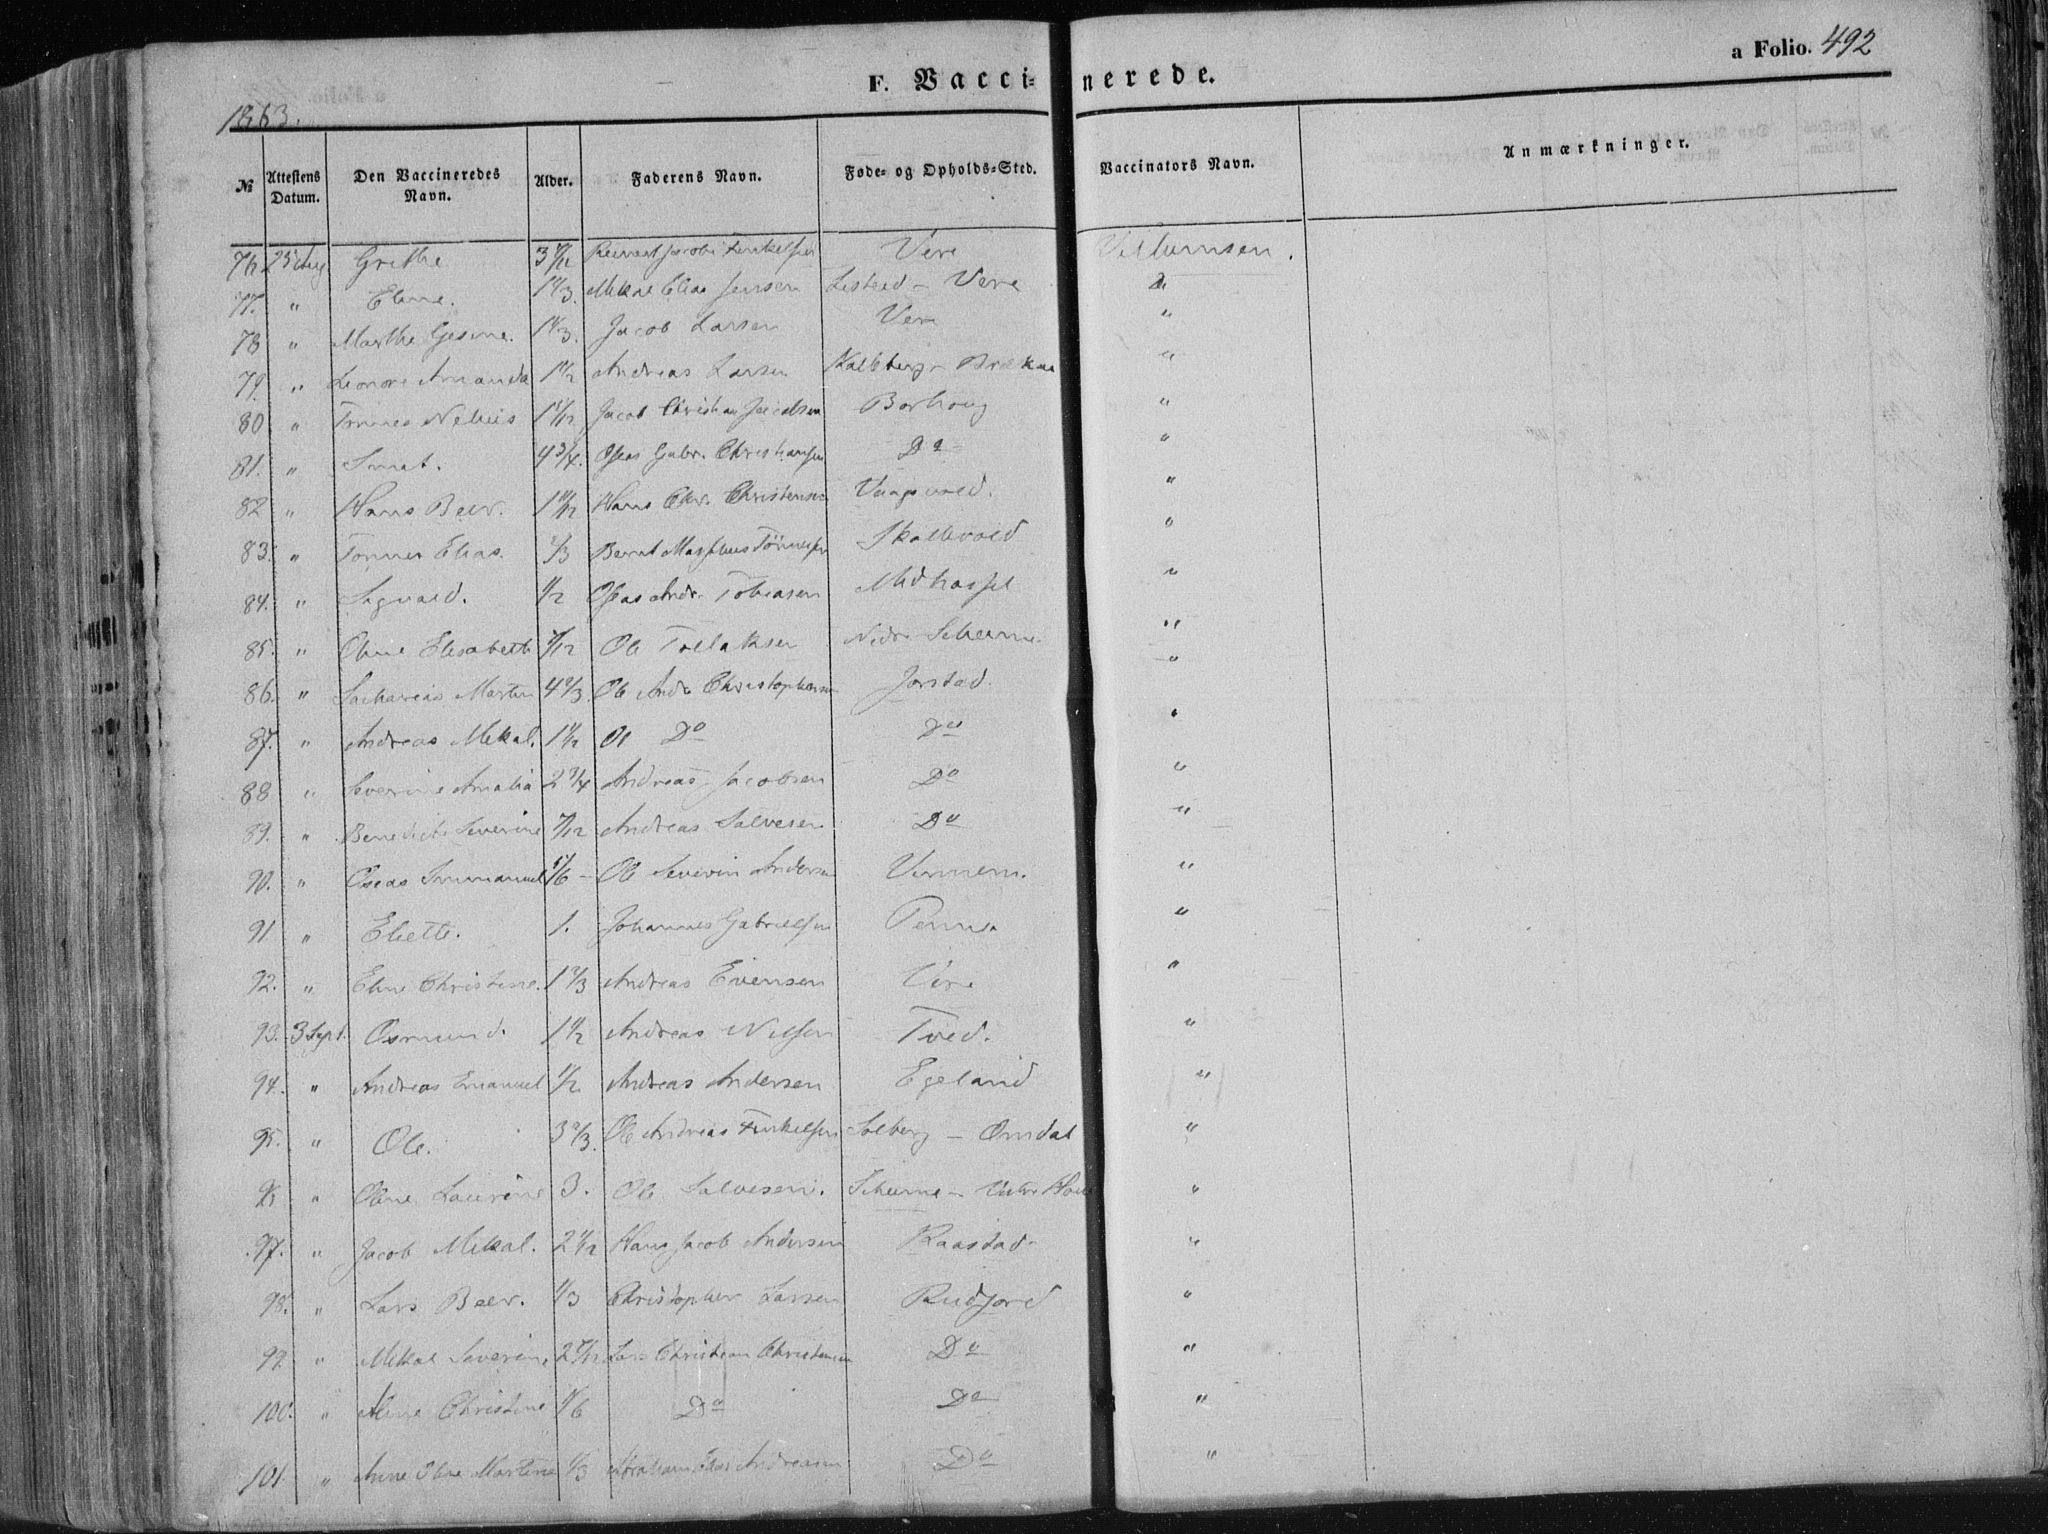 a Folio. 492
F. Vaccinerede.
1863.
№ Attestens Datum. Den Vaccineredes Navn. Alder. Faderens Navn. Føde- og Opholds-Sted. Vaccinators Navn. Anmærkninger.
76 25 Aug Grethe 3 Jacob Vere Villumsen.
77. " Eline. 1 1/3. Mikal Elias Jensen Listeid - Vere "
78 " Marthe Gesine. 1 1/3. Jacob Larsen Vere "
79. " Leonore Amanda 1 1/2 Andreas Larsen Kalleberg - "
80 " Tønnes 1 Jacob Christian Jacobsen Borhoug "
81. " 4 3/4. Oseas Gabr. Christiansen Do "
82 " Hans Beer. 1 Hans Chr. Christensen Vaagsvold. "
83. " Tønnes Elias. 2/3 Bernt Tönnesen Skollevold "
84. " Sigvald. 1/2 Oseas Andr. Tobiasen Midhassel "
85. " Oline Elisabeth 7/12 Ole Tollaksen Nedre "
86. " Sacharias Martin 4 2/3. Ole Andr Christophersen Jørstad. "
87. " Andreas Mikal. 1 1/2 Ol Do Do "
88 " Severine Amalia 2 3/4 Andreas Jacobsen Do "
89. " Benedicte Severine 7/12 Andreas Salvesen Do "
90. " Oseas Immanuel 1/6 - Ole Severin Andersen "
91 " Eliette. 1. Johannes Gabrielsen Penne "
92. " Eline Christine. 1 2/3 Andreas Evensen Vere "
93. 3 Sept. Osmund. 1 1/2 Andreas Nilsen Tved. "
94. " Andreas Emanuel 1/2 Andreas Andersen Egeland "
95. " Ole. 3 2/3. Ole Andreas Solberg - Omdal "
" Oline Laurine 3. Ole Salvesen. "
97. " Jacob Mikal. 2 1/2 Hans Jacob Andersen Raastad. "
98. " Lars Beer. 1/3 Christopher Larsen Rudjord "
99. " Mikal Severin. 2 7/12 Lars Christian Christensen Do "
100. " Aline Christine 1/6 Do Do "
101. " Anne Oline Martine 1/3 Abraham Elias Andreasen Do "